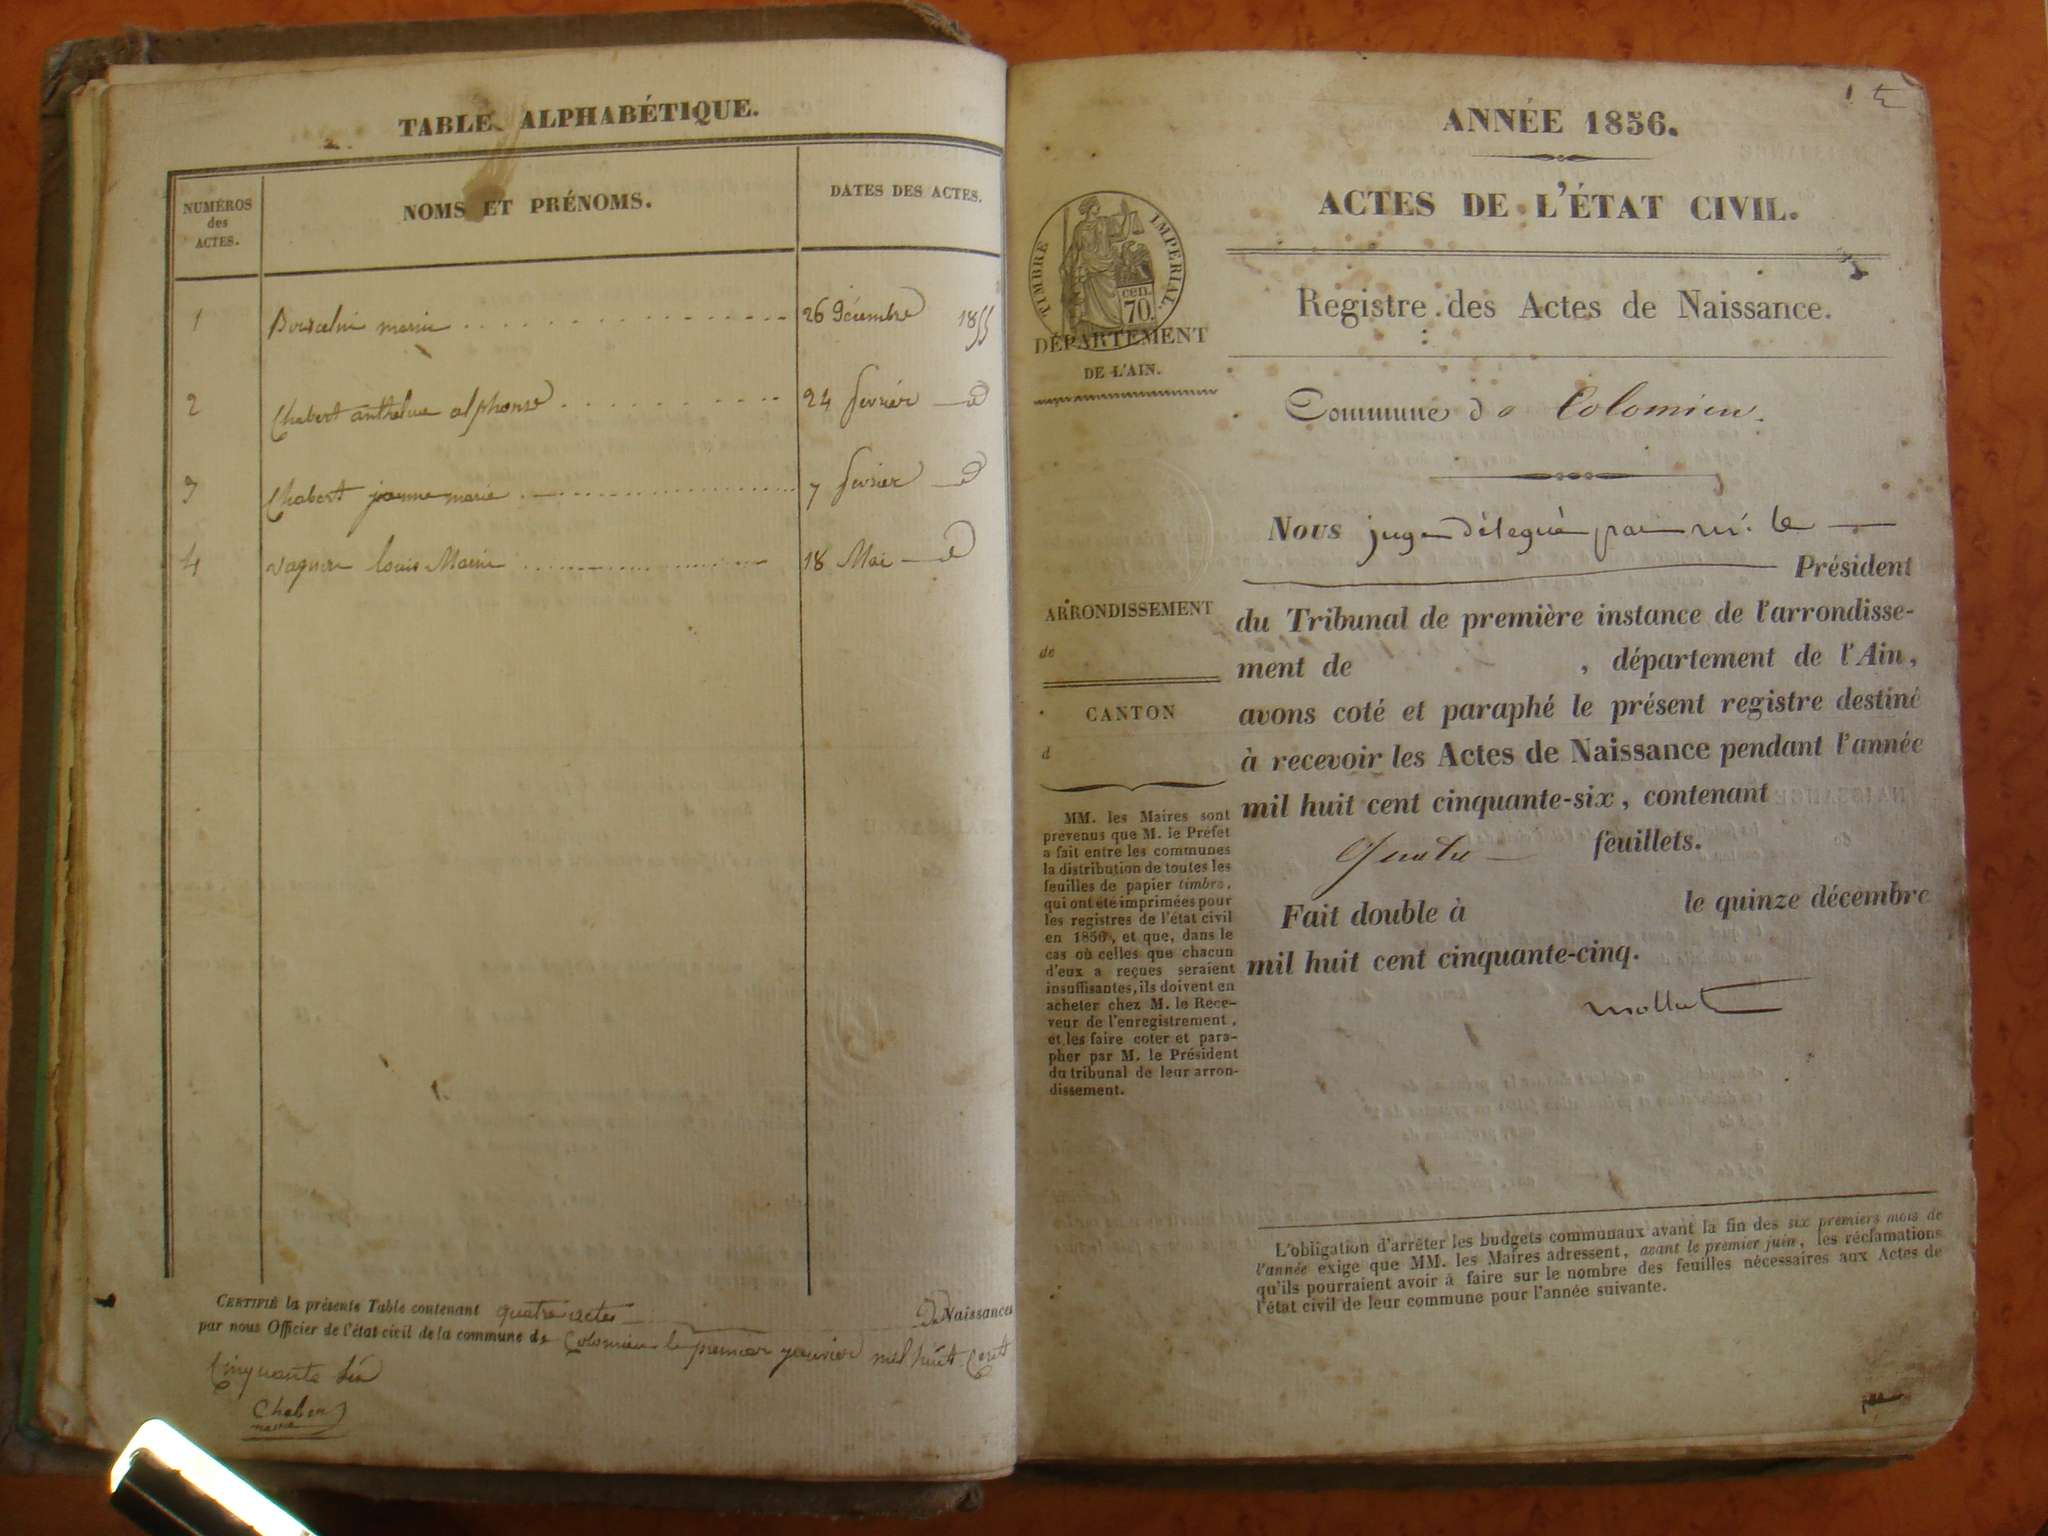 TABLE ALPHABÉTIQUE.
NUMÉROS
des
ACTES.
NOMS ET PRÉNOMS.
DATES DES ACTES.
1 marin 26 Décembre 1855
2 Chabert anthelme alphonse 24 fevrier d
3 Chabert jeanne marie 7 fevrier d
4 Louis Marin 18 Mai d
CERTIFIÉ la présente Table contenant quatre actes de Naissances
par nous Officier de l'état civil de la commune de Colomieu le premier janvier mil huit cent
Cinquante six
Chabert
maire
ANNÉE 1856.
ACTES DE L'ÉTAT CIVIL.
TIMBRE IMPERIAL
cen.
70.
DÉPARTEMENT
DE L'AIN.
Registre des Actes de Naissance.
Commune de Colomieu.
Nous juge délégué par m. le
Président
du Tribunal de première instance de l'arrondisse-
ment de , département de l'Ain,
avons coté et paraphé le présent registre destiné
à recevoir les Actes de Naissance pendant l'année
mil huit cent cinquante-six, contenant
Quatre feuillets.
Fait double à le quinze décembre
mil huit cent cinquante-cinq.
ARRONDISSEMENT
de
CANTON
d
MM. les Maires sont
prévenus que M. le Préfet
a fait entre les communes
la distribution de toutes les
feuilles de papier timbré,
qui ont été imprimées pour
les registres de l'état civil
en 1856, et que, dans le
cas où celles que chacun
d'eux a reçues seraient
insuffisantes, ils doivent en
acheter chez M. le Rece-
veur de l'enregistrement,
et les faire coter et para-
pher par M. le Président
du tribunal de leur arron-
dissement.
L'obligation d'arrêter les budgets communaux avant la fin des six premiers mois de
l'année exige que MM. les Maires adressent, avant le premier juin, les réclamations
qu'ils pourraient avoir à faire sur le nombre des feuilles nécessaires aux Actes de
l'état civil de leur commune pour l'année suivante.